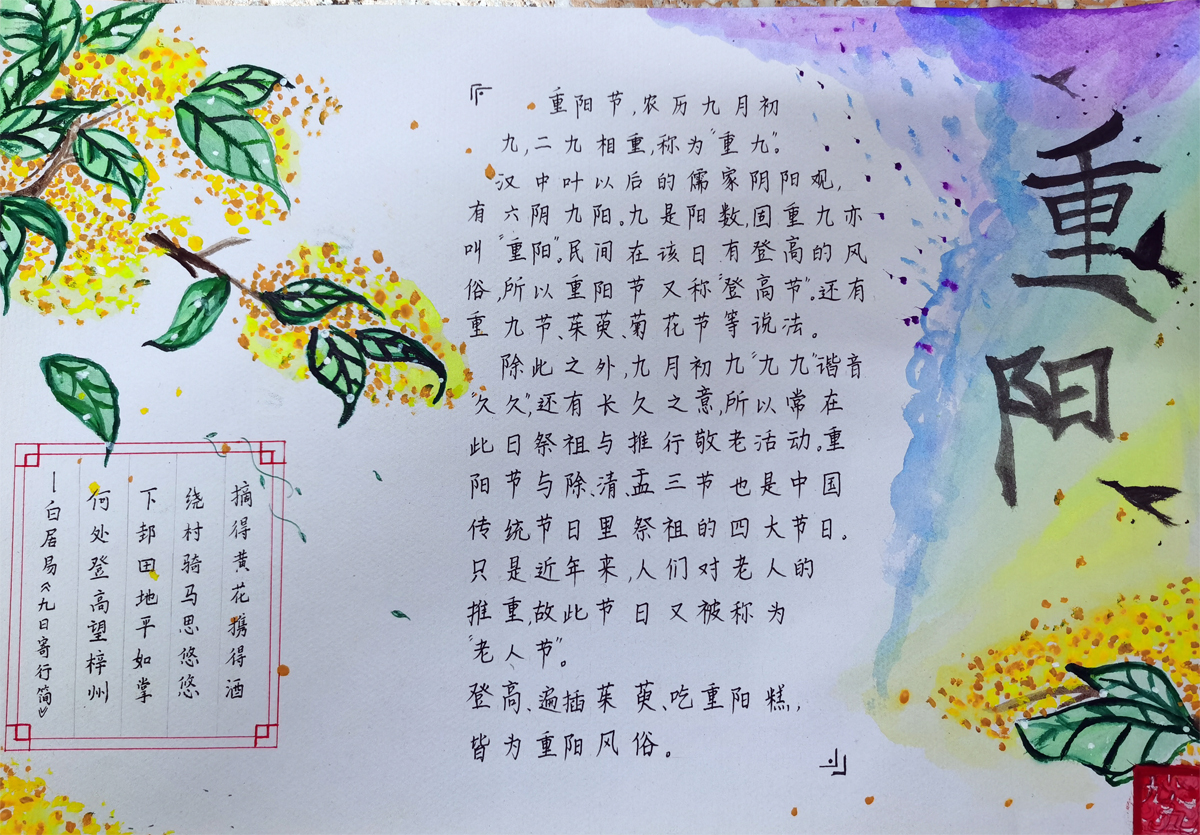 重阳
重阳节,农历九月初
九,二九相重,称为"重九"。
汉中叶以后的儒家阴阳观,
有六阴九阳。九是阳数,固重九亦
叫"重阳"。民间在该日有登高的风
俗,所以重阳节又称"登高节"。还有
重九节、茱萸、菊花节等说法。
除此之外,九月初九"九九"谐音
"久久",还有长久之意,所以常在
此日祭祖与推行敬老活动。重
阳节与除、清、盂三节也是中国
传统节日里祭祖的四大节日。
只是近年来,人们对老人的
推重,故此节日又被称为
"老人节"。
登高、遍插茱萸、吃重阳糕,
皆为重阳风俗。
摘得黄花携得酒
绕村骑马思悠悠
下邽田地平如掌
何处登高望梓州
—白居易《九日寄行简》